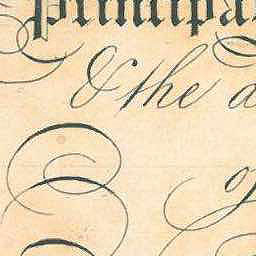 principa
& the a
of